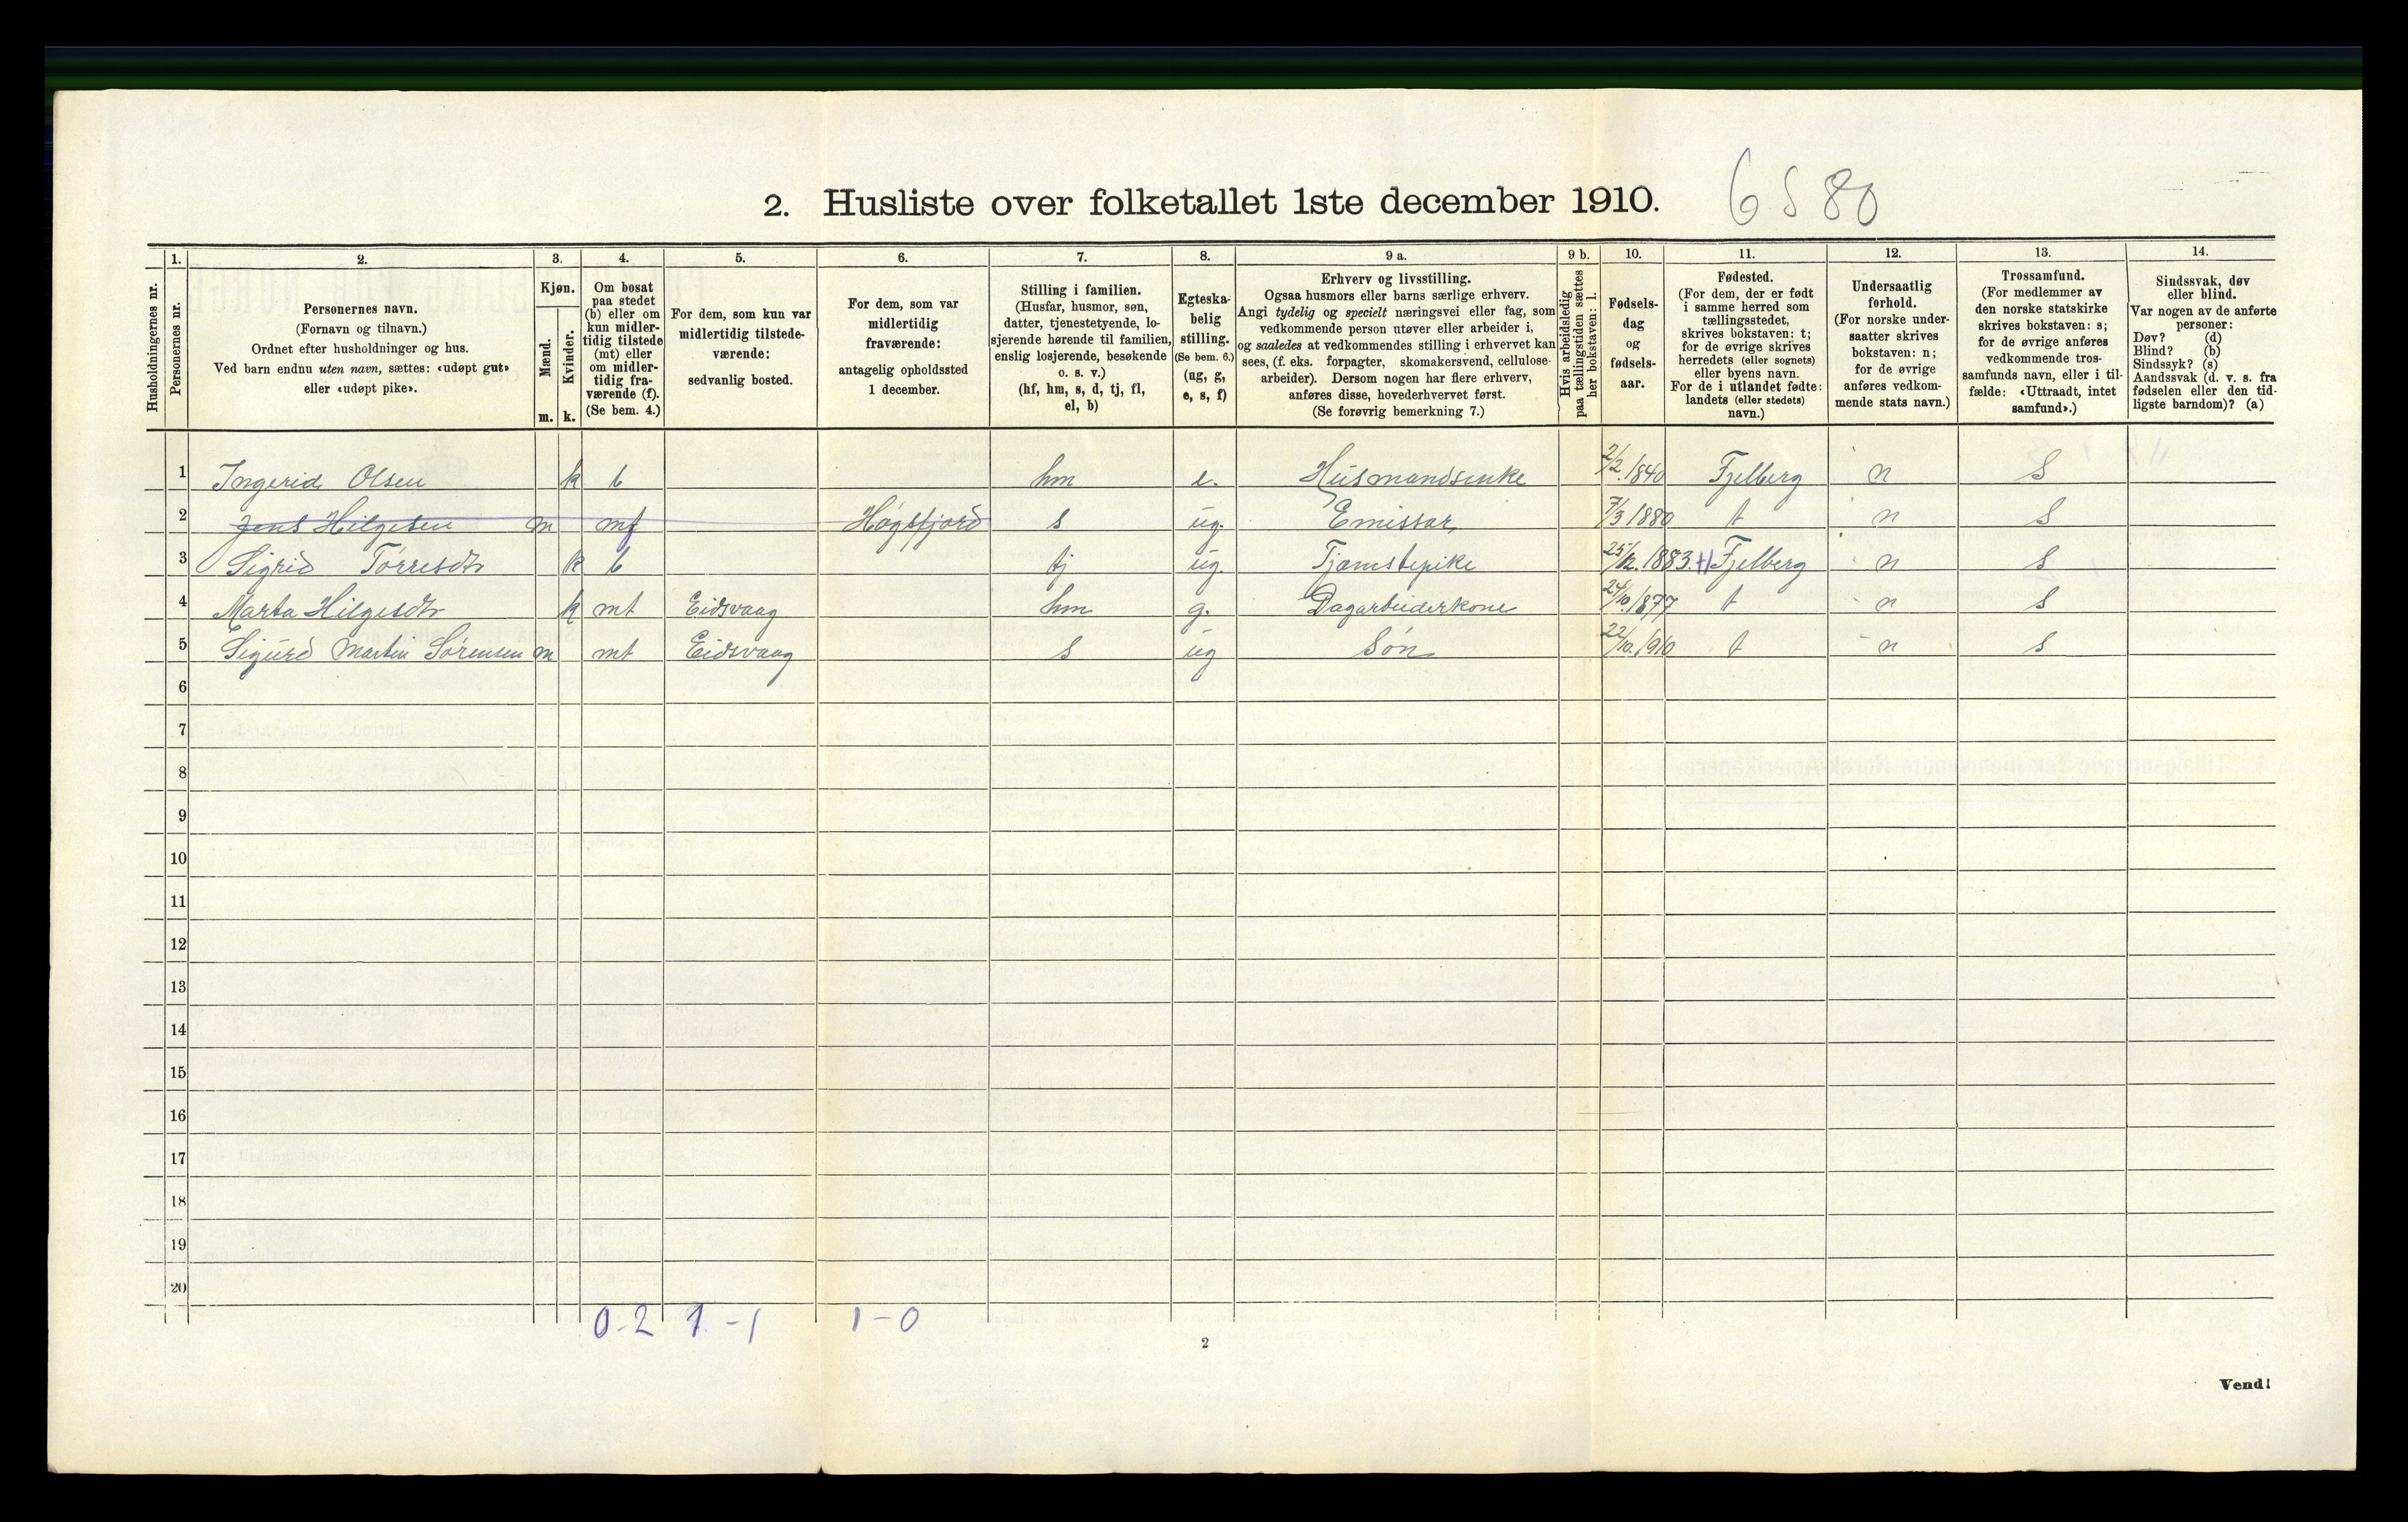 2. Husliste over folketallet 1ste december 1910. 6 S 80
Husholdningernes nr.
1. Personernes nr.
2. Personernes navn. (Fornavn og tilnavn.) Ordnet efter husholdninger og hus. Ved barn endnu uten navn, sættes: «udøpt gut» eller «udøpt pike».
3. Kjøn. Mænd. m. Kvinder. k.
4. Om bosat paa stedet (b) eller om kun midlertidig tilstede (mt) eller om midlertidig fraværende (f). (Se bem. 4.)
5. For dem, som kun var midlertidig tilstedeværende: sedvanlig bosted.
6. For dem, som var midlertidig fraværende: antagelig opholdssted 1 december.
7. Stilling i familien. (Husfar, husmor, søn, datter, tjenestetyende, losjerende hørende til familien, enslig losjerende, besøkende o. s. v.) (hf, hm, s, d, tj, fl, el, b)
8. Egteskabelig stilling. (Se bem. 6.) (ug, g, e, s, f)
9 a. Erhverv og livsstilling. Ogsaa husmors eller barns særlige erhverv. Angi tydelig og specielt næringsvei eller fag, som vedkommende person utøver eller arbeider i, og saaledes at vedkommendes stilling i erhvervet kan sees, (f. eks. forpagter, skomakersvend, cellulosearbeider). Dersom nogen har flere erhverv, anføres disse, hovederhvervet først. (Se forøvrig bemerkning 7.)
9 b. Hvis arbeidsledig paa tællingstiden sættes her bokstaven: l.
10. Fødselsdag og fødselsaar.
11. Fødested. (For dem, der er født i samme herred som tællingsstedet, skrives bokstaven: t; for de øvrige skrives herredets (eller sognets) eller byens navn. For de i utlandet fødte: landets (eller stedets) navn.)
12. Undersaatlig forhold. (For norske undersaatter skrives bokstaven: n; for de øvrige anføres vedkommende stats navn.)
13. Trossamfund. (For medlemmer av den norske statskirke skrives bokstaven: s; for de øvrige anføres vedkommende trossamfunds navn, eller i tilfælde: «Uttraadt, intet samfund».)
14. Sindssvak, døv eller blind. Var nogen av de anførte personer: Døv? (d) Blind? (b) Sindssyk? (s) Aandssvak (d. v. s. fra fødselen eller den tidligste barndom)? (a)
1 Ingerid Olsen k b hm e. Husmandsenke 2/2.1840 Fjelberg n S
2 Jens Hilgesen m mf Høgsfjord s ug. Emissar 7/3 1880 t n S
3 Sigrid Tørresdtr k b tj ug. Tjæmstepike 25/12.1883. Fjelberg n S
4 Marta Hilgesdtr k mt Eidsvaag hm g. Dagarbeiderkone 24/10.1877 t n S
5 Sigurd Martin Sørensen m mt Eidsvaag s ug Søn 22/10.1910 t n S
6
7
8
9
10
11
12
13
14
15
16
17
18
19
20
0-2 1-1 1-0
2
Vend!